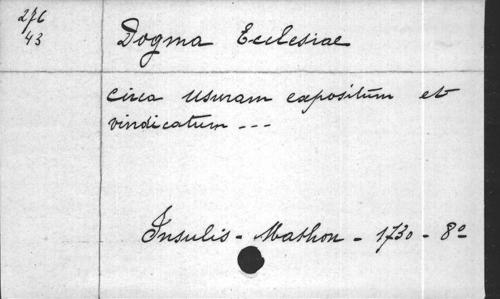 276
43
Dogma Ecclesiae
circa Usuram expositum et
vindicatum ---
Insulis - Mathon - 1730 - 8º